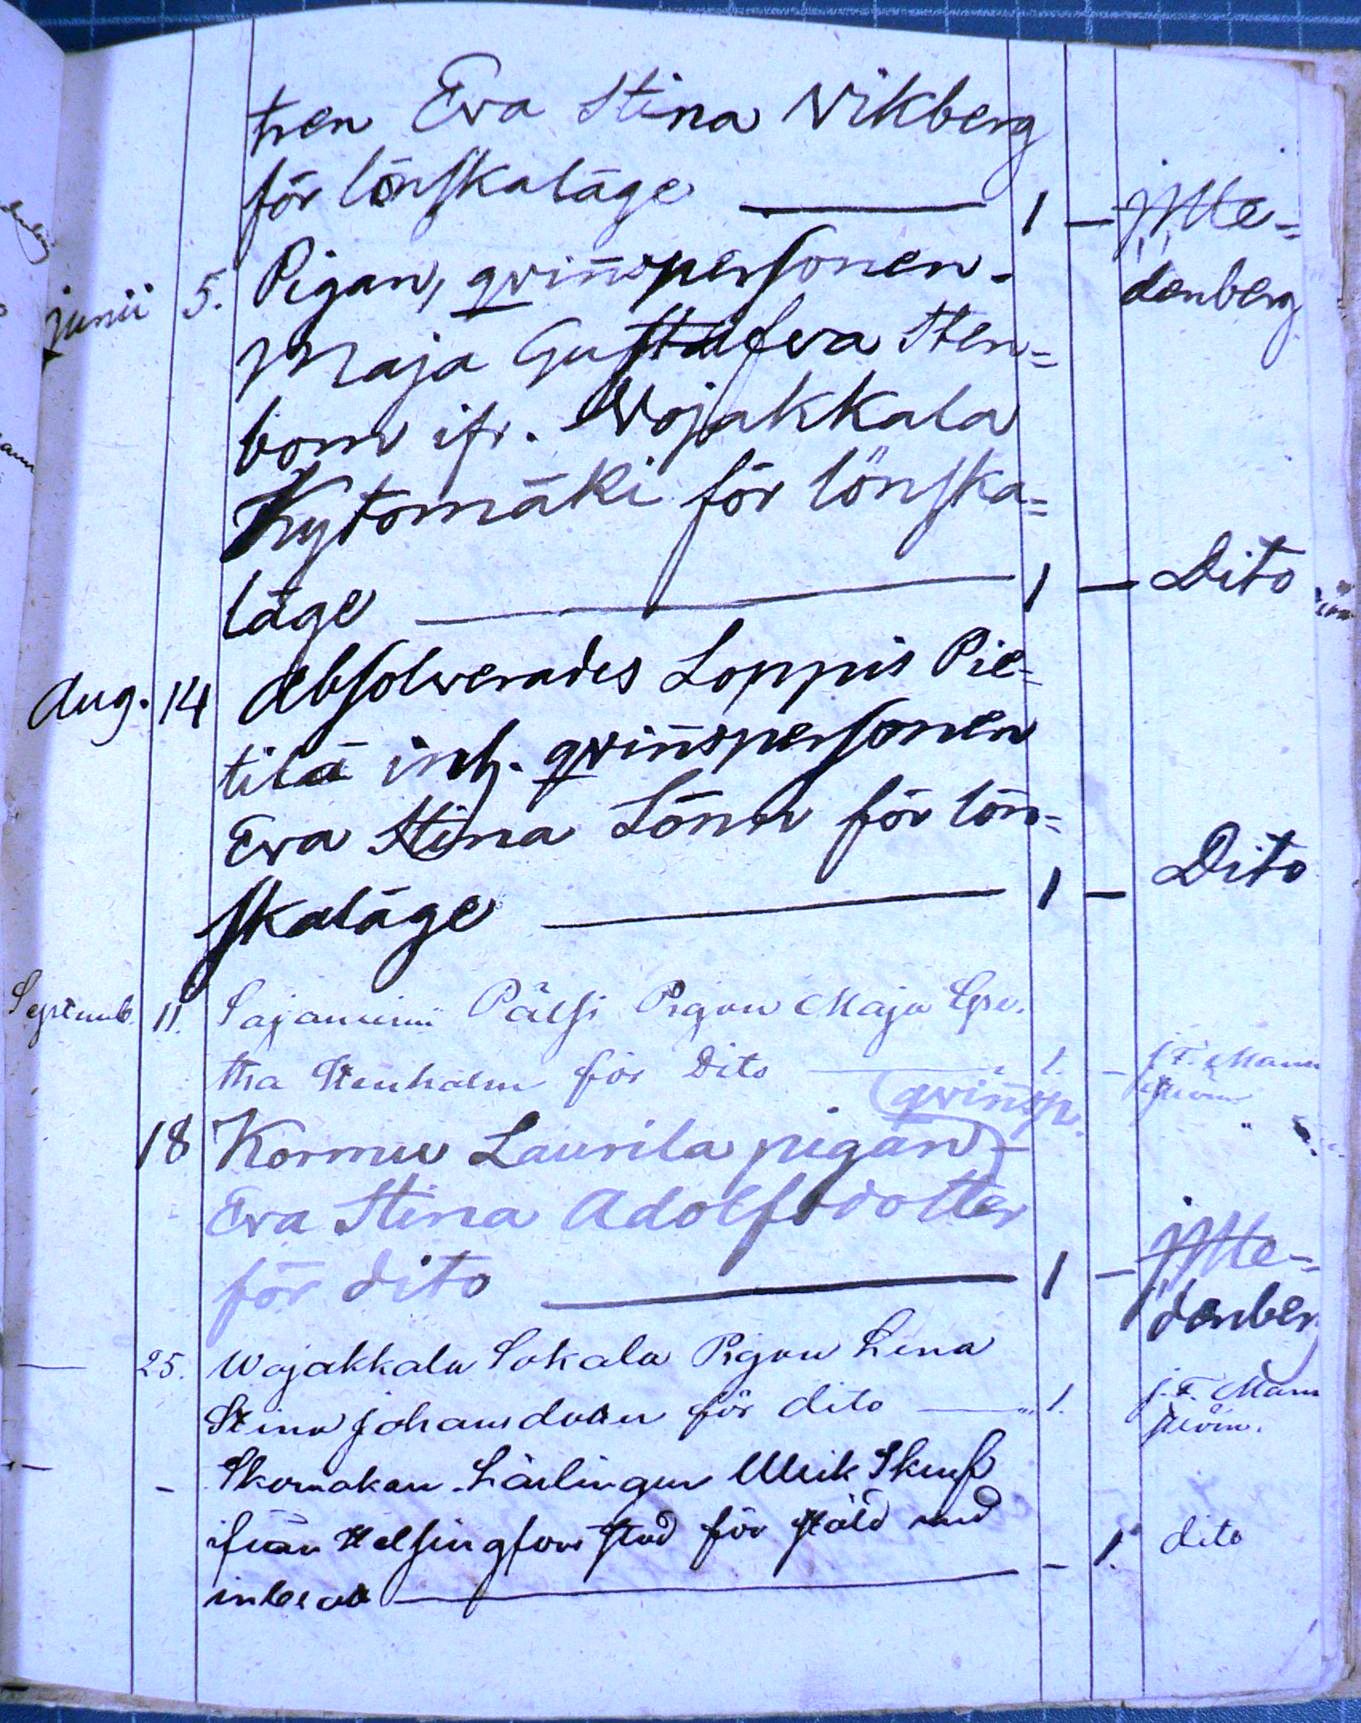 tren Eva Stina Vikberg
för lönskaläge 1 —
denberg
junii 5. Pigan, qvin̄spersonen
Maja Gustafva Sten=
bom ifr. Wojakkala
Kytömäki för lönska=
läge 1 — Dito
Aug. 14 Absolverades Loppis Pie=
tilä inh. qvin̄spersonen
Eva Stina Lönn för lön=
skaläge 1 — Dito
Septemb. 11. Sajaniemi Pälsi Pigan Maja Gre.
tha Stenholm för Dito 1. — J. F. Mann
ström
(qvin̄sp.
18 Kormu Laurila pigan)
Eva Stina Adolfsdotter
för dito 1 —
denber
— 25. Wojakkala Sokala Pigan Lena
Stina Johansdotter för dito 1. J. F. Mann
ström.
— - Skomakare Lärlingen Ulrik
ifrån Helsingfors stad för stöld med
inbrott — 1. dito